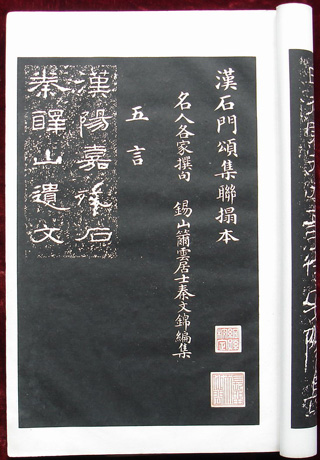 漢石門頌集聯搨本
名人各家撰句 錫山籋雲居士秦文錦編集
五言
漢陽嘉殘石
秦嶧山遺文